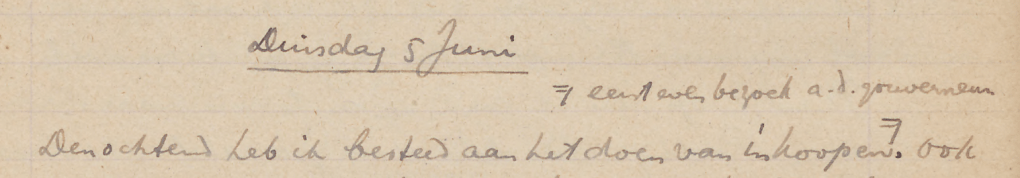 Dinsdag 5 Juni
⌐ eerst even bezoek a.d. gouverneur
Den ochtend heb ik besteed aan het doen van inkoopen⌐. Ook